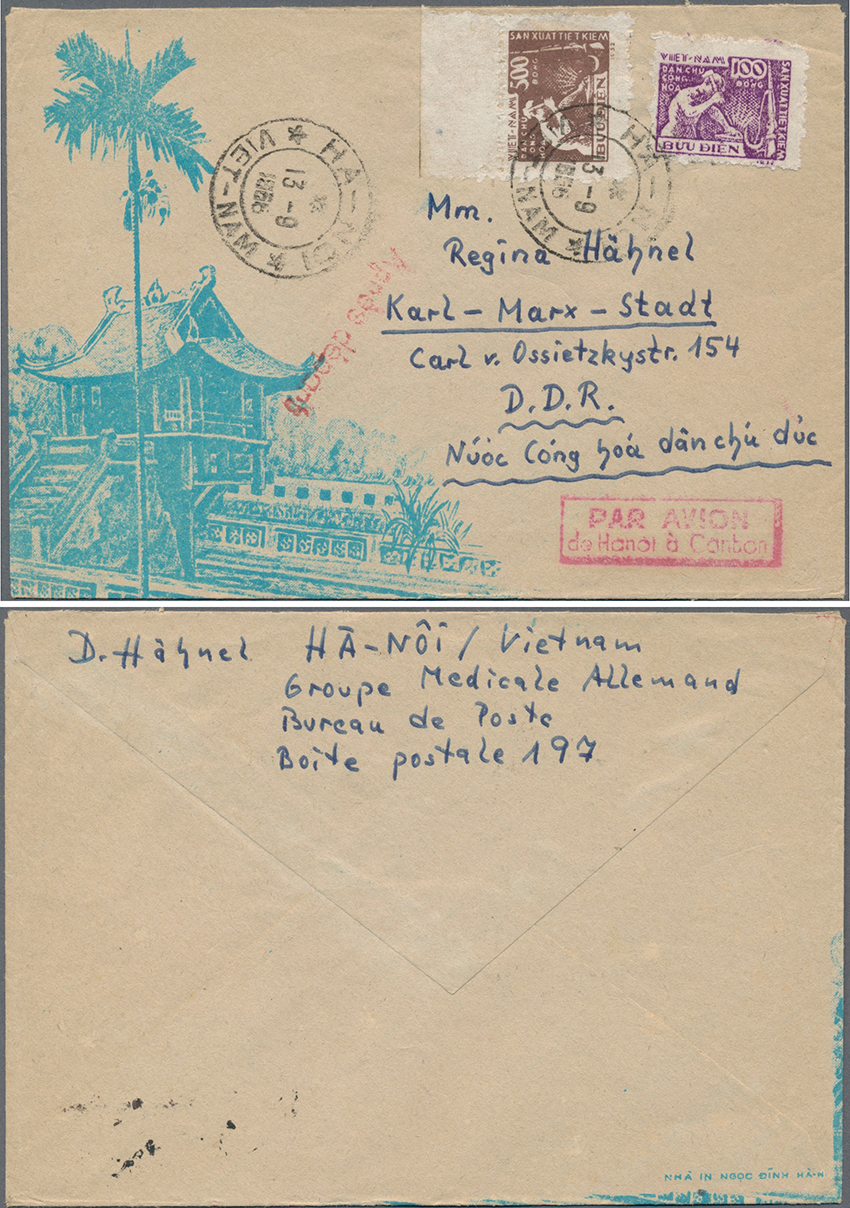 SẢN XUẤT TIẾT KIỆM
500
ĐỒNG
VIỆT-NAM
DÂN CHỦ
CỘNG
BƯU ĐIỆN
VIỆT-NAM
100
ĐỒNG
DÂN CHỦ
CỘNG
HÒA
SẢN XUẤT TIẾT KIỆM
BƯU ĐIỆN
HA-NOI * VIET-NAM *
13-9
1956
HA-NOI * VIET-NAM *
13-9
1956
Mm.
Regina Hähnel
Karl-Marx-Stadt
Carl v. Ossietzkystr. 154
D.D.R.
Nước Cộng hoà dân chủ đức
Après départ
PAR AVION
de Hanoi à Canton
D. Hähnel HÀ-NÔI / Vietnam
Groupe Medicale Allemand
Bureau de Poste
Boîte postale 197
NHÀ IN NGỌC ĐÌNH HÀ-N